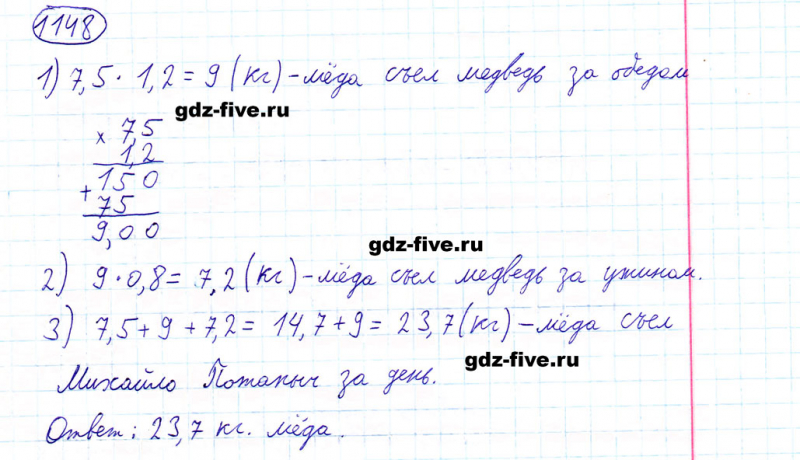 1148
1) 7,5 · 1,2 = 9 (кг) - мёда съел медведь за обедом
gdz-five.ru
× 7,5
1,2
+ 150
75
9,00
gdz-five.ru
2) 9 · 0,8 = 7,2 (кг) - мёда съел медведь за ужином.
3) 7,5 + 9 + 7,2 = 14,7 + 9 = 23,7 (кг) - мёда съел
gdz-five.ru
Михайло Потапыч за день.
Ответ: 23,7 кг. мёда.